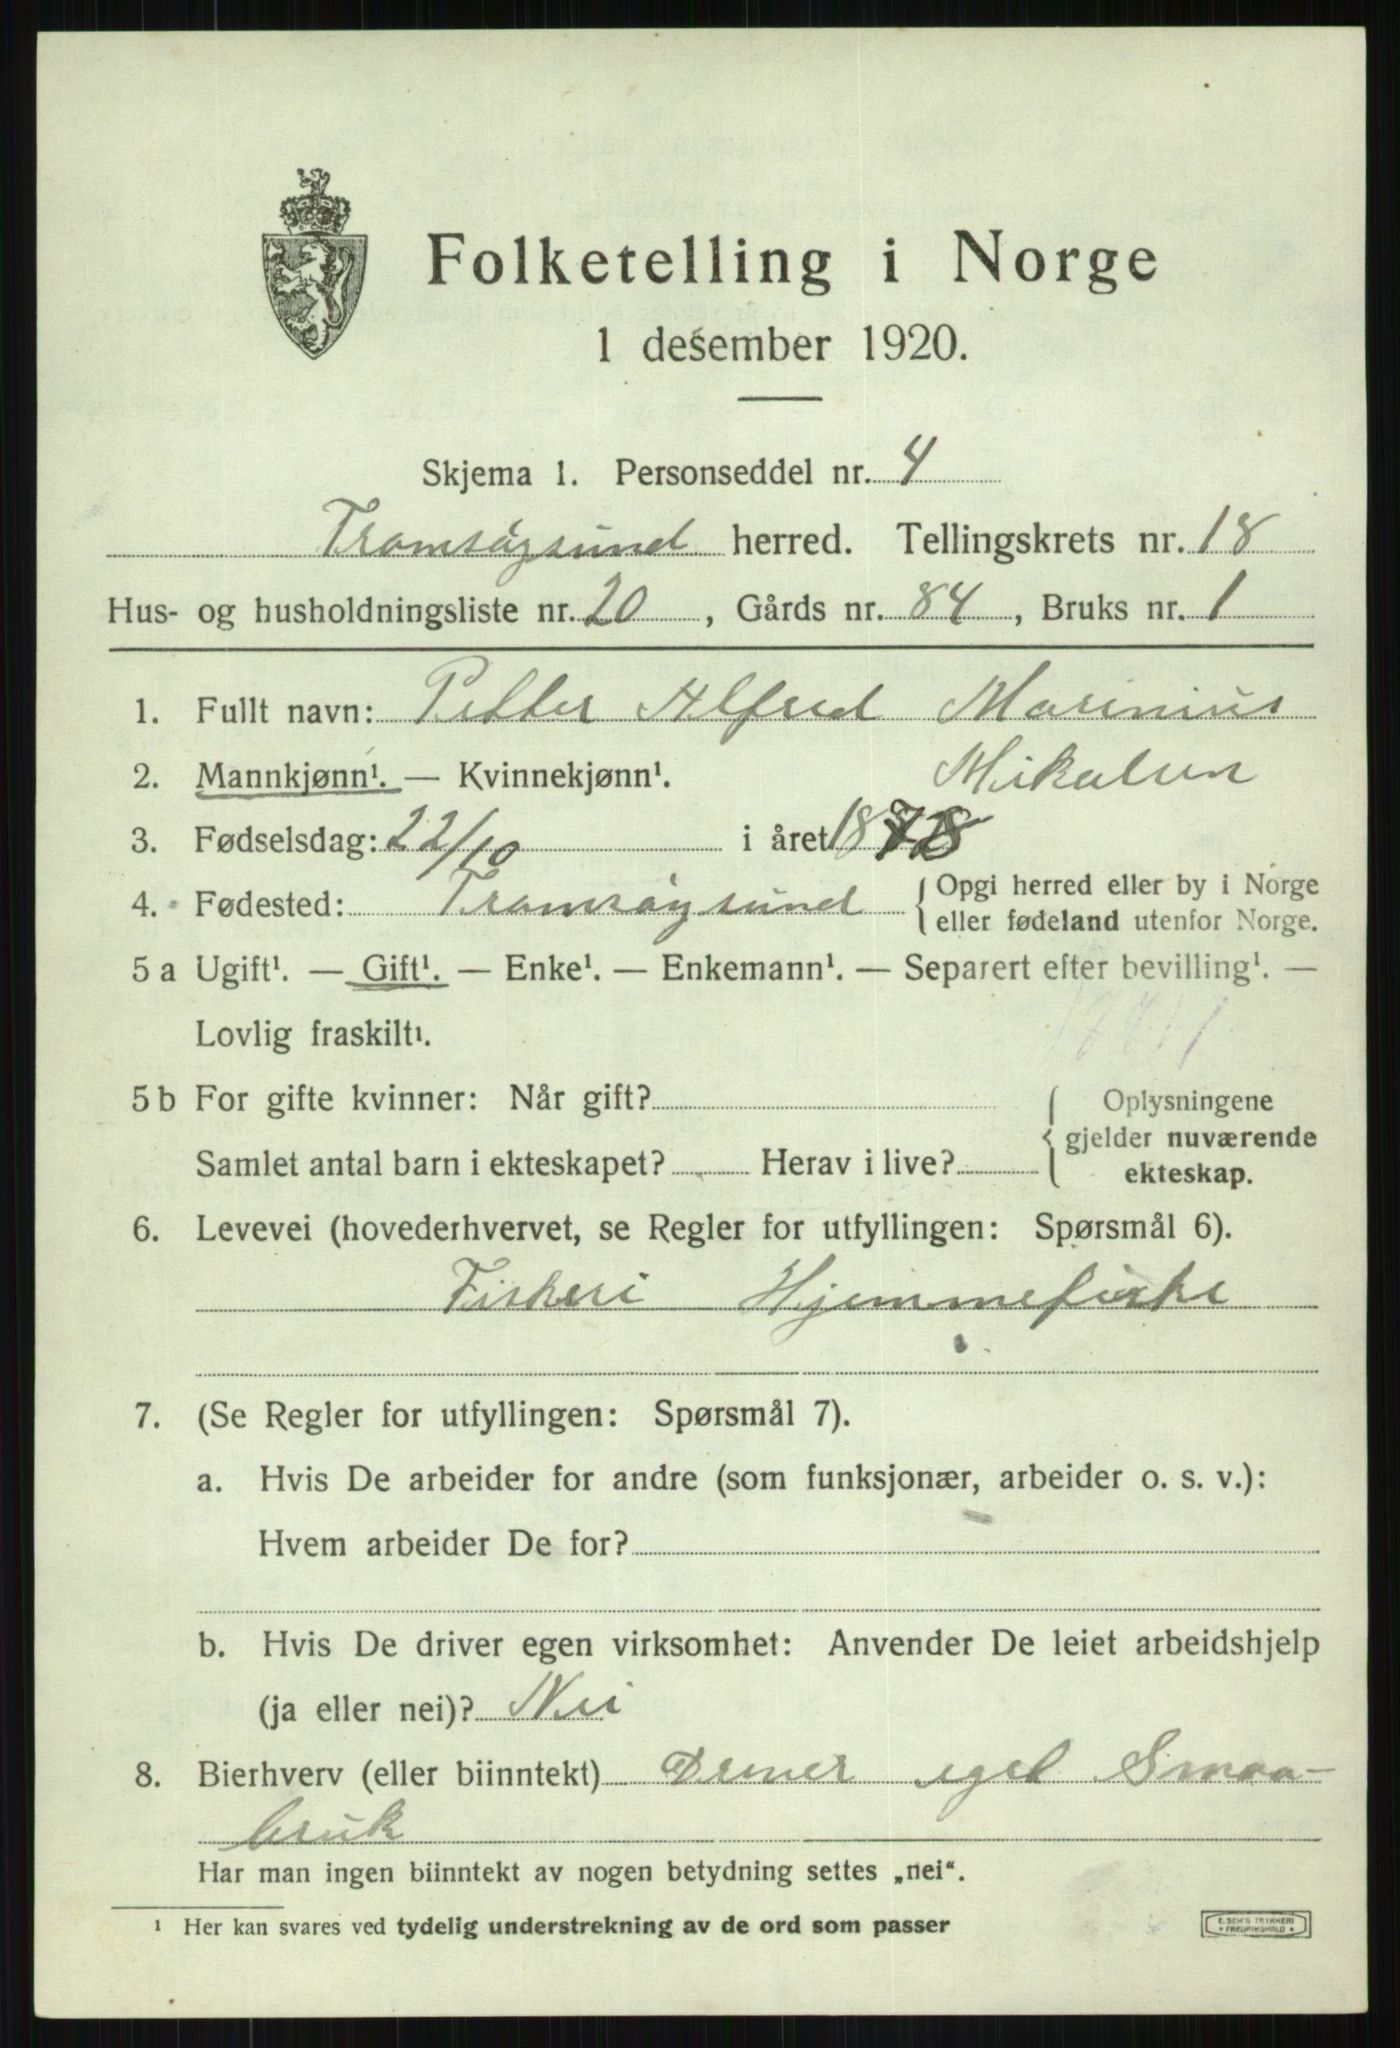 Folketelling i Norge
1 desember 1920.
Skjema 1. Personseddel nr. 4
Tromsøysund herred. Tellingskrets nr. 18
Hus- og husholdningsliste nr. 20, Gårds nr. 84, Bruks nr. 1
1. Fullt navn: Petter Alfred Marinius
2. Mannkjønn¹. — Kvinnekjønn¹. Mikalsen
3. Fødselsdag: 22/10 i året 1878
4. Fødested: Tromsøysund { Opgi herred eller by i Norge
eller fødeland utenfor Norge.
5 a Ugift¹. — Gift¹. — Enke¹. — Enkemann¹. — Separert efter bevilling¹. —
Lovlig fraskilt¹.
5 b For gifte kvinner: Når gift? { Oplysningene
gjelder nuværende
Samlet antal barn i ekteskapet? Herav i live? ekteskap.
6. Levevei (hovederhvervet, se Regler for utfyllingen: Spørsmål 6).
Fiskeri Hjemmefiske
7. (Se Regler for utfyllingen: Spørsmål 7).
a. Hvis De arbeider for andre (som funksjonær, arbeider o. s. v.):
Hvem arbeider De for?
b. Hvis De driver egen virksomhet: Anvender De leiet arbeidshjelp
(ja eller nei)? Nei
8. Bierhverv (eller biinntekt) Driver eget Smaa-
bruk
Har man ingen biinntekt av nogen betydning settes „nei“.
¹ Her kan svares ved tydelig understrekning av de ord som passer
E. SEM'S TRYKKERI
FREDRIKSHALD